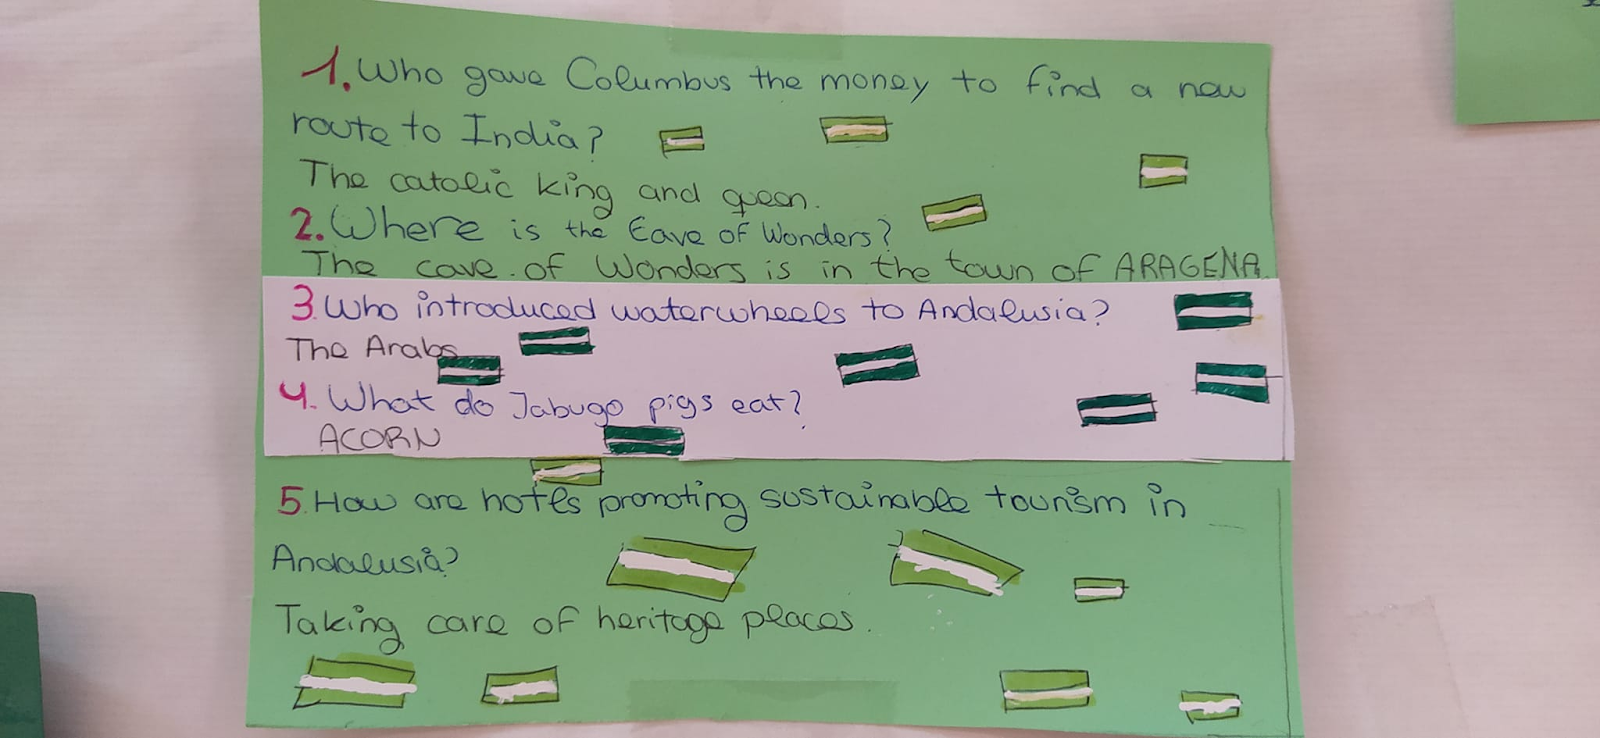 1. Who gave Columbus the money to find a new
route to India?
The catolic king and queen.
2. Where is the Cave of Wonders?
The cave of Wonders is in the town of ARAGENA.
3. Who introduced waterwheels to Andalusia?
The Arabs
4. What do Jabugo pigs eat?
ACORN
5. How are hotels promoting sustainable tourism in
Andalusia?
Taking care of heritage places.